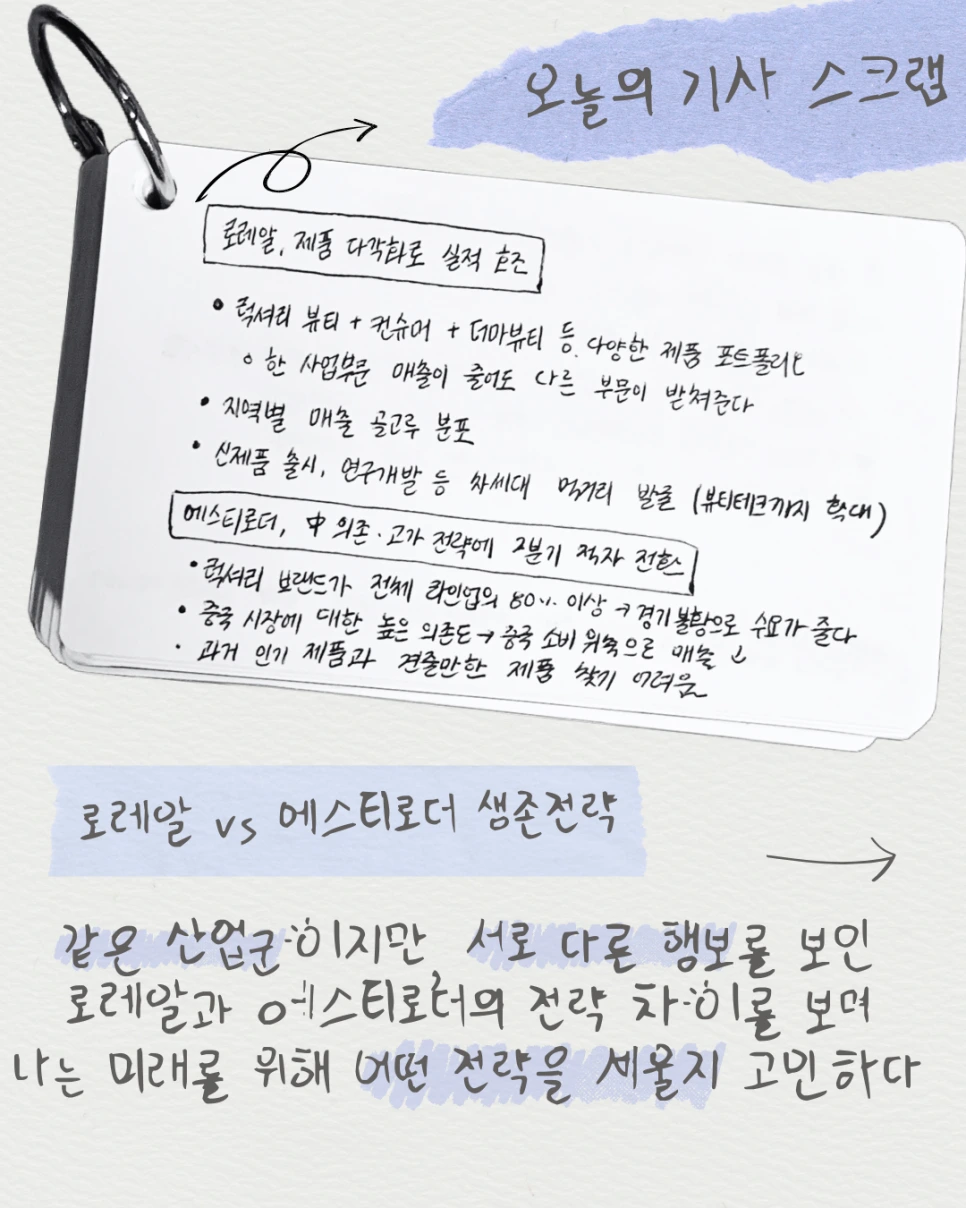 오늘의 기사 스크랩
로레알, 제품 다각화로 실적 호조
• 럭셔리 뷰티 + 컨슈머 + 더마뷰티 등 다양한 제품 포트폴리오
○ 한 사업부문 매출이 줄어도 다른 부문이 받쳐준다
• 지역별 매출 골고루 분포
• 신제품 출시, 연구개발 등 차세대 먹거리 발굴 (뷰티테크까지 확대)
에스티로더, 中 의존·고가 전략에 2분기 적자 전환
• 럭셔리 브랜드가 전체 라인업의 80% 이상 → 경기 불황으로 수요가 줄다
• 중국 시장에 대한 높은 의존도 → 중국 소비 위축으로 매출 ↓
• 과거 인기 제품과 견줄만한 제품 찾기 어려움
로레알 vs 에스티로더 생존전략
같은 산업군이지만 서로 다른 행보를 보인
로레알과 에스티로더의 전략 차이를 보며
나는 미래를 위해 어떤 전략을 세울지 고민하다